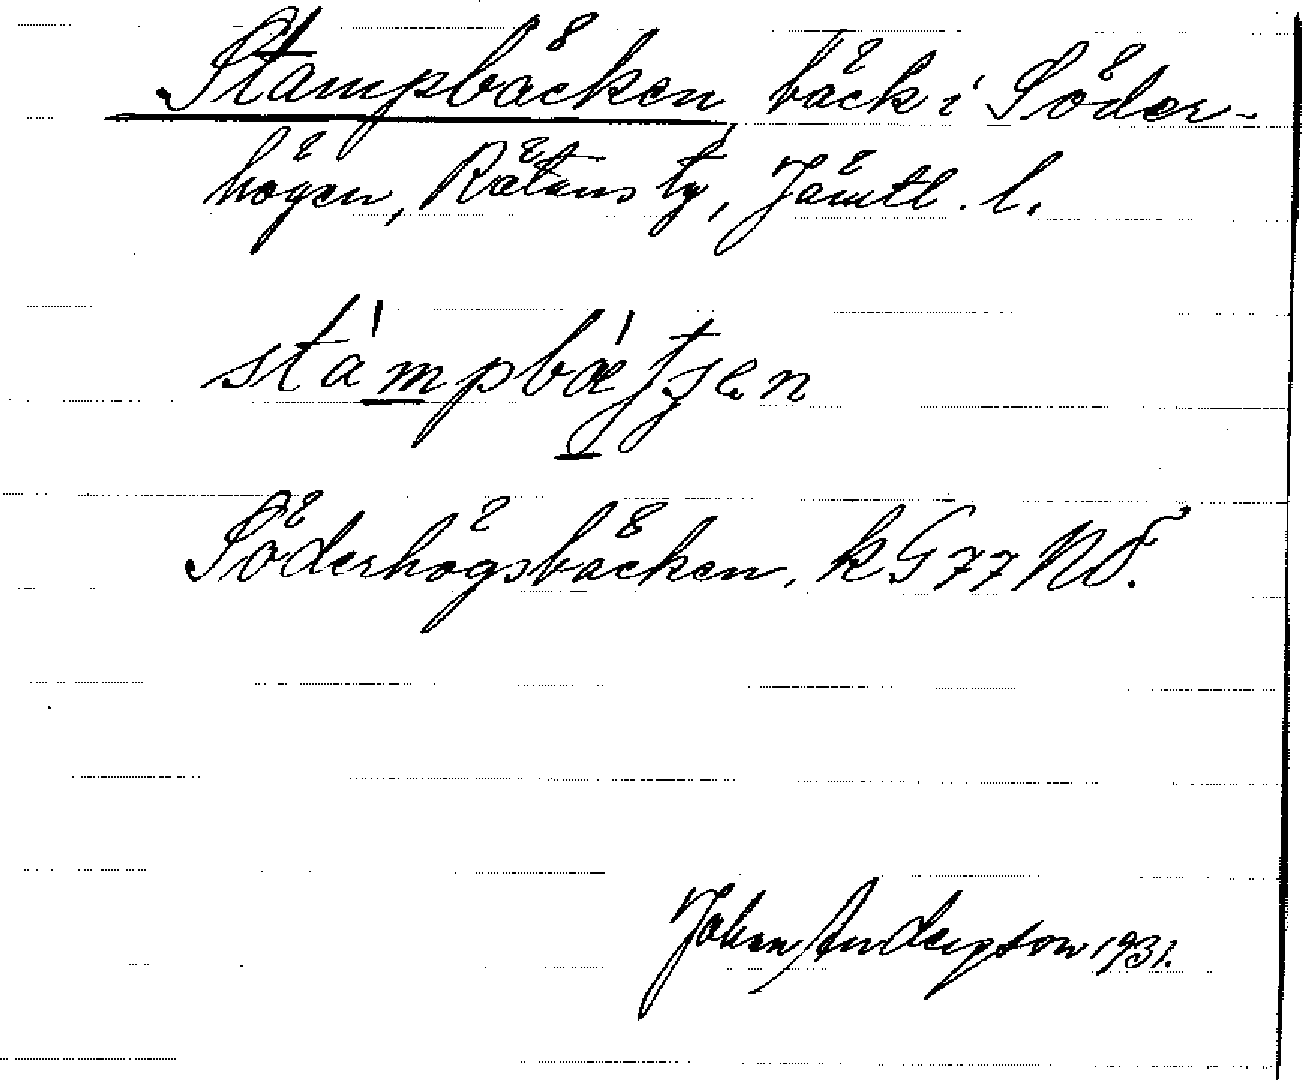 Stampbäcken, bäck i Söder-
högen, Rätans tg, Jämtl. l.
stámpbǽtʃen
Söderhögsbäcken, k G 77 NO.
Johan Anderson 1931.